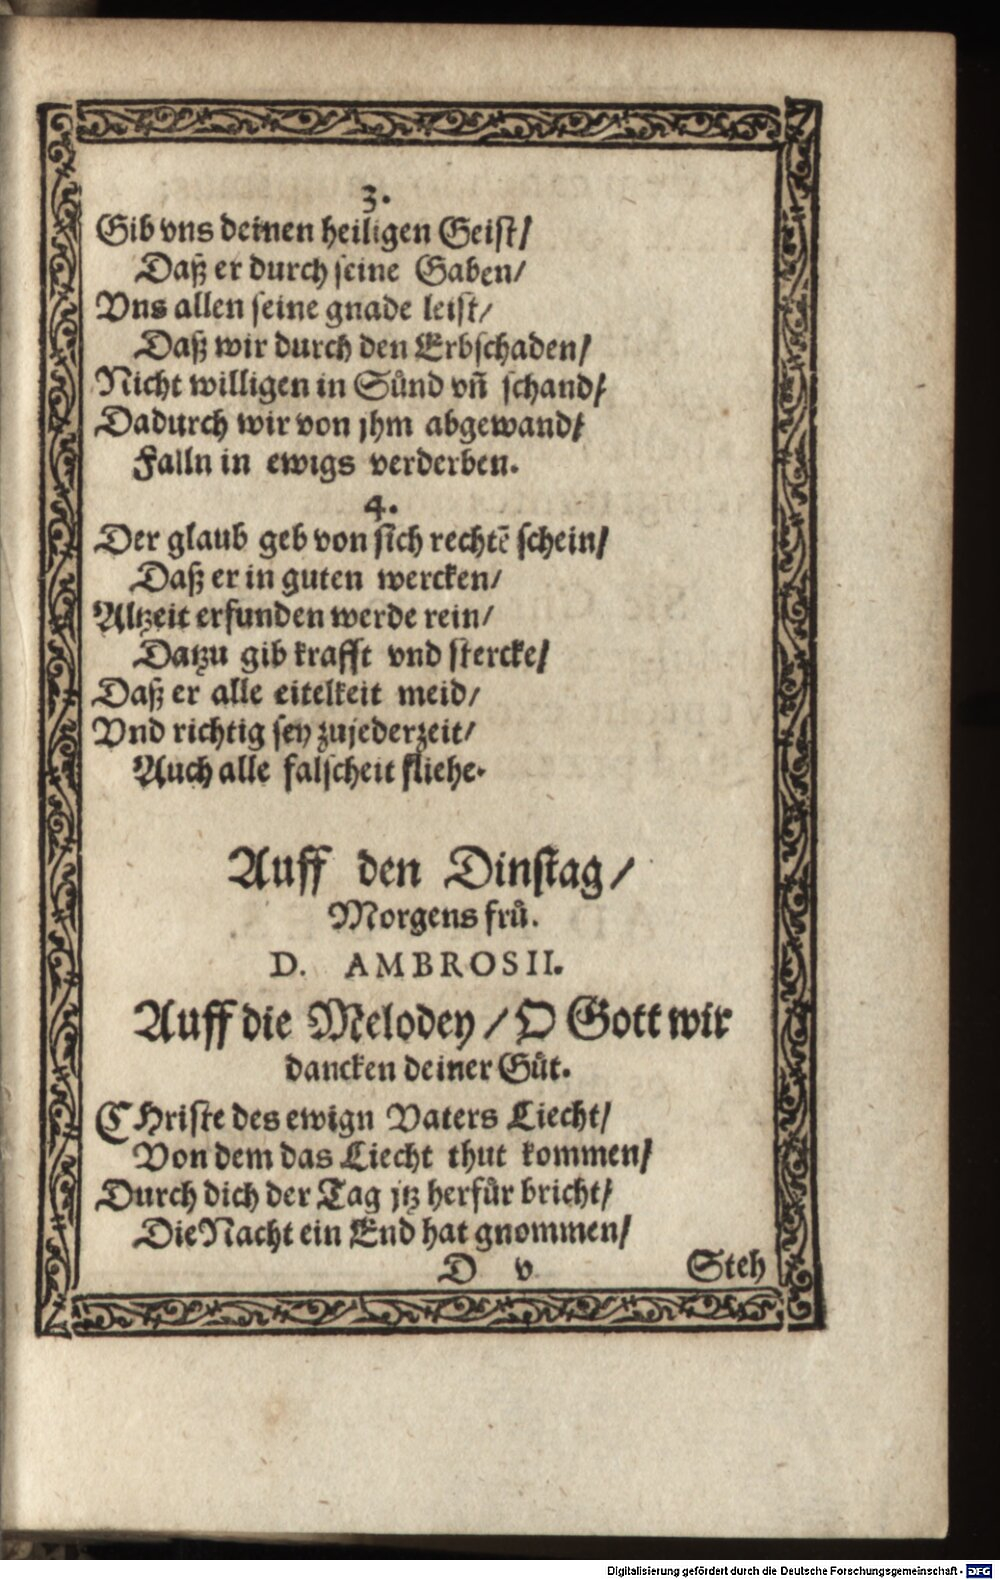 3.
Gib vns deinen heiligen Geist/
Daß er durch seine Gaben/
Vns allen seine gnade leist/
Daß wir durch den Erbschaden/
Nicht willigen in Sůnd vñ schand/
Dadurch wir von jhm abgewand/
Falln in ewigs verderben.
4.
Der glaub geb von sich rechtẽ schein/
Daß er in guten wercken/
Altzeit erfunden werde rein/
Datzu gib krafft vnd stercke/
Daß er alle eitelkeit meid/
Vnd richtig sey zujederzeit/
Auch alle falscheit fliehe.
Auff den Dinstag/
Morgens frů.
D. AMBROSII.
Auff die Melodey/ O Gott wir
dancken deiner Gůt.
CHriste des ewign Vaters Liecht/
Von dem das Liecht thut kommen/
Durch dich der Tag jtz herfůr bricht/
Die Nacht ein End hat gnommen/
D v Steh
Digitalisierung gefördert durch die Deutsche Forschungsgemeinschaft - DFG